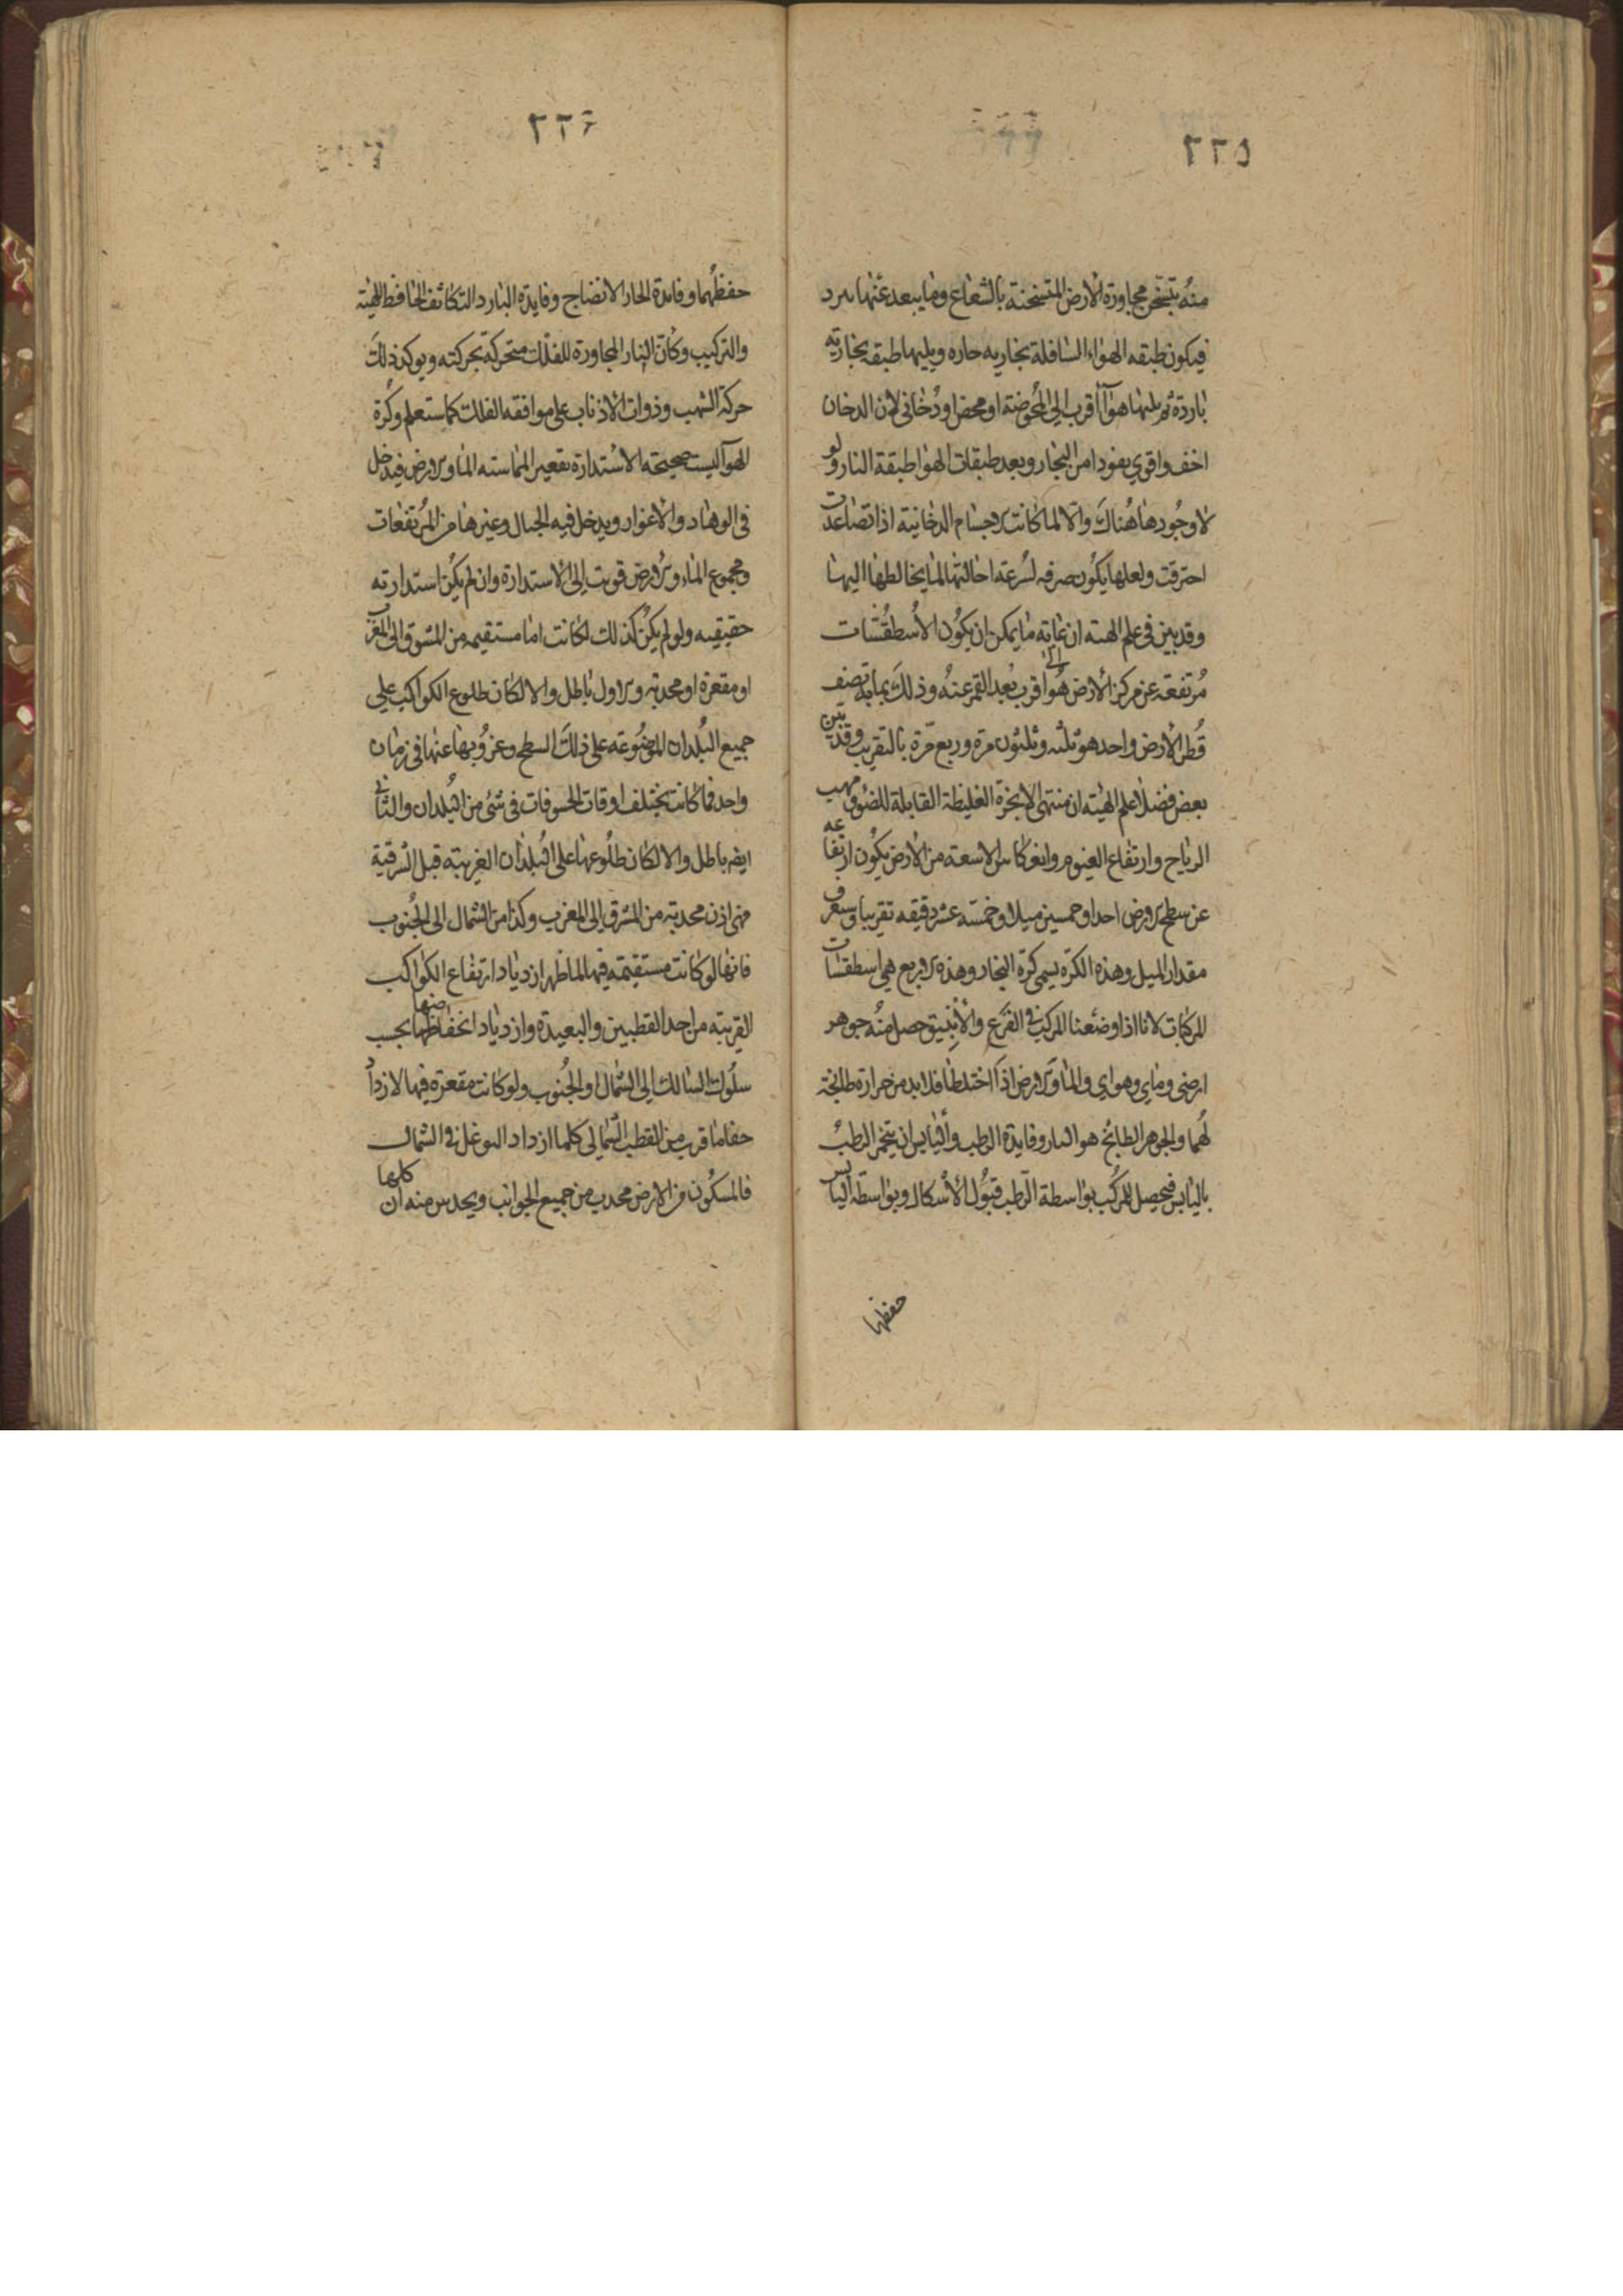 ٢٢٥
منه يتسخن مجاورة الارض المتسخنة بالشعاع وما يبعد عنها يبرد
فيكون طبقه الهواء السافلة بخاريه حاره ويليها طبقه بخاريه
باردة ثم يليها هوآ أقرب الي المحوضة او محض او دخاني لان الدخان
اخف واقوي نفودا من البخار وبعد طبقات الهوا طبقة النار ولو
لا وجودها هناك والا لما كانت الاجسام الدخانية اذا تصاعدت
احترقت ولعلها يكون صرفه لسرعة احالتها لما يخالطها اليها
وقد بين في علم الهيئه ان غاية ما يمكن ان يكون الأسطقسات
مرتفعة عن مركز الأرض هو الى اقرب بعد القمر عنه وذلك بمابه نصف
قطر الأرض واحد هو ثلثه وثلثون مرة وربع مرة بالتقريب وقد بين
بعض فضلا علم الهيئه ان منتهى الابخرة الغليظة القابلة للضوء مهب
الرياح وارتفاع الغيوم وانعكاس الاشعة من الأرض يكون ارتفاعه
عن سطح الارض احدا وخمسين ميلا وخمسة عشر دقيقه تقريبا وستعرف
مقدار الميل وهذه الكرة يسمى كرة البخار وهذه الاربع هي اسطقسات
المركبات لانا اذا وضعنا المركب في القرع والأنبيق حصل منه جوهر
ارضى وماي وهواي والما والارض اذا اختلطا فلا بد من حرارة طابخة
لهما والجوهر الطابخ هو النار وفايدة الرطب واليابس ان يتخمر الرطب
باليابس فيحصل للمركب بواسطة الرطب قبول الأشكال وبواسطة اليابس
حفظها
٢٢٦
حفظهما وفايدة الحار الانضاج وفايدة البارد التكاثف الحافظ للهيئة
والتركيب وكأن النار المجاورة للفلك متحركة بحركته ويوكد ذلك
حركة الشهب وذوات الاذناب على موافقه الفلك كما ستعلم وكرة
الهوآ ليست صحيحة الاستدارة بقعير المماسته الما والارض فيدخل
في الوهاد والاغوار ويدخل فيه الجبال وغيرها من المرتفعات
ومجموع الماء والارض قويت الى الاستدارة وان لم يكن استدارته
حقيقيه ولو لم يكن كذلك لكانت اما مستقيمه من المشرق الى المغرب
او مقعرة او محدبة والاول باطل والا لكان طلوع الكواكب علي
جميع البلدان الموضوعه على ذلك السطح وغروبها عنها في زمان
واحد فما كانت يختلف اوقات الخسوفات في شئ من البلدان والثاني
ايضا باطل والا لكان طلوعها على البلدان الغربية قبل الشرقية
فهى اذن محدبة من المشرق الى المغرب وكذا من الشمال الى الجنوب
فانها لو كانت مستقيمة فيهما لما ظهر ازدياد ارتفاع الكواكب
القريبة من احد القطبين والبعيدة وازدياد انخفاضها بحسب
سلوك السالك الى الشمال او الجنوب ولو كانت مقعرة فيهما لازداد
خفا ما قرب من القطب الشمالي كلما ازداد التوغل في الشمال
فالمسكون من الارض محدب من جميع الجوانب ويحدس منه ان كلها